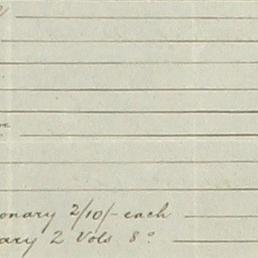 onary 2/10/- each
ary 2 Vols 8°